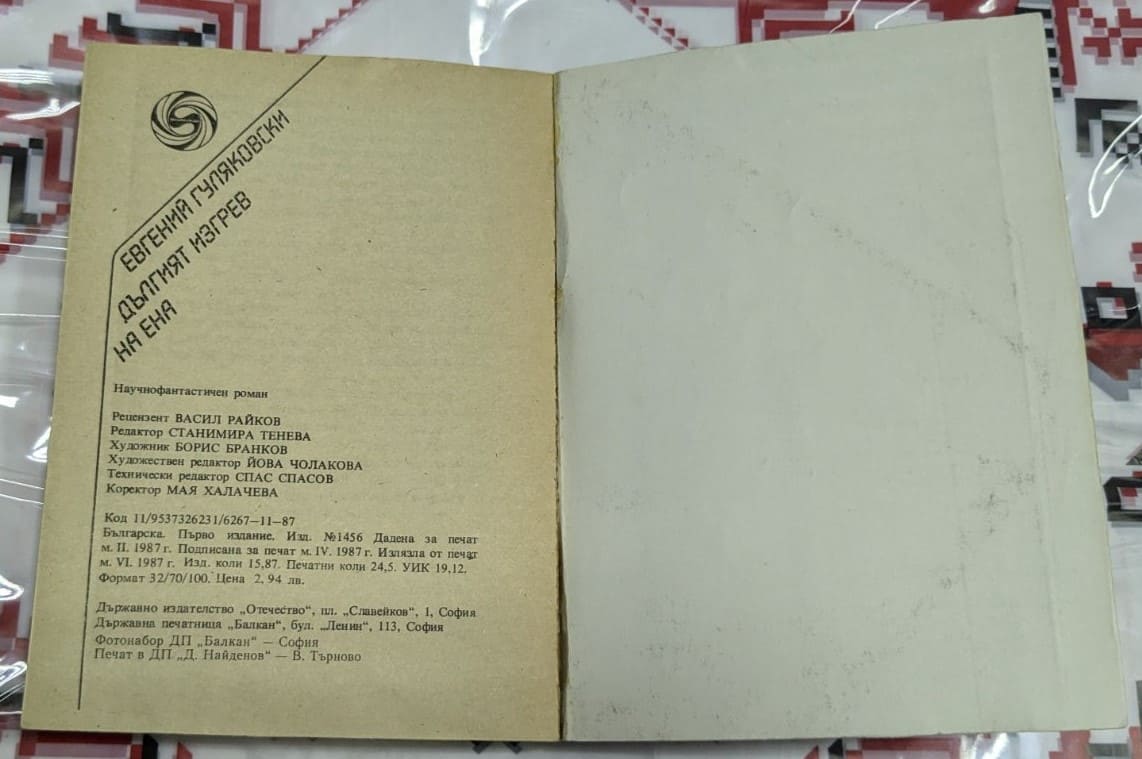 ЕВГЕНИЙ ГУЛЯКОВСКИ
ДЪЛГИЯТ ИЗГРЕВ
НА ЕНА
Научнофантастичен роман
Рецензент ВАСИЛ РАЙКОВ
Редактор СТАНИМИРА ТЕНЕВА
Художник БОРИС БРАНКОВ
Художествен редактор ЙОВА ЧОЛАКОВА
Технически редактор СПАС СПАСОВ
Коректор МАЯ ХАЛАЧЕВА
Код 11/9537326231/6267—11—87
Българска. Първо издание. Изд. №1456 Дадена за печат
м. II. 1987 г. Подписана за печат м. IV. 1987 г. Излязла от печат
м. VI. 1987 г. Изд. коли 15,87. Печатни коли 24,5. УИК 19,12.
Формат 32/70/100. Цена 2,94 лв.
Държавно издателство „Отечество“, пл. „Славейков“, 1, София
Държавна печатница „Балкан“, бул. „Ленин“, 113, София
Фотонабор ДП „Балкан“ — София
Печат в ДП „Д. Найденов“ — В. Търново